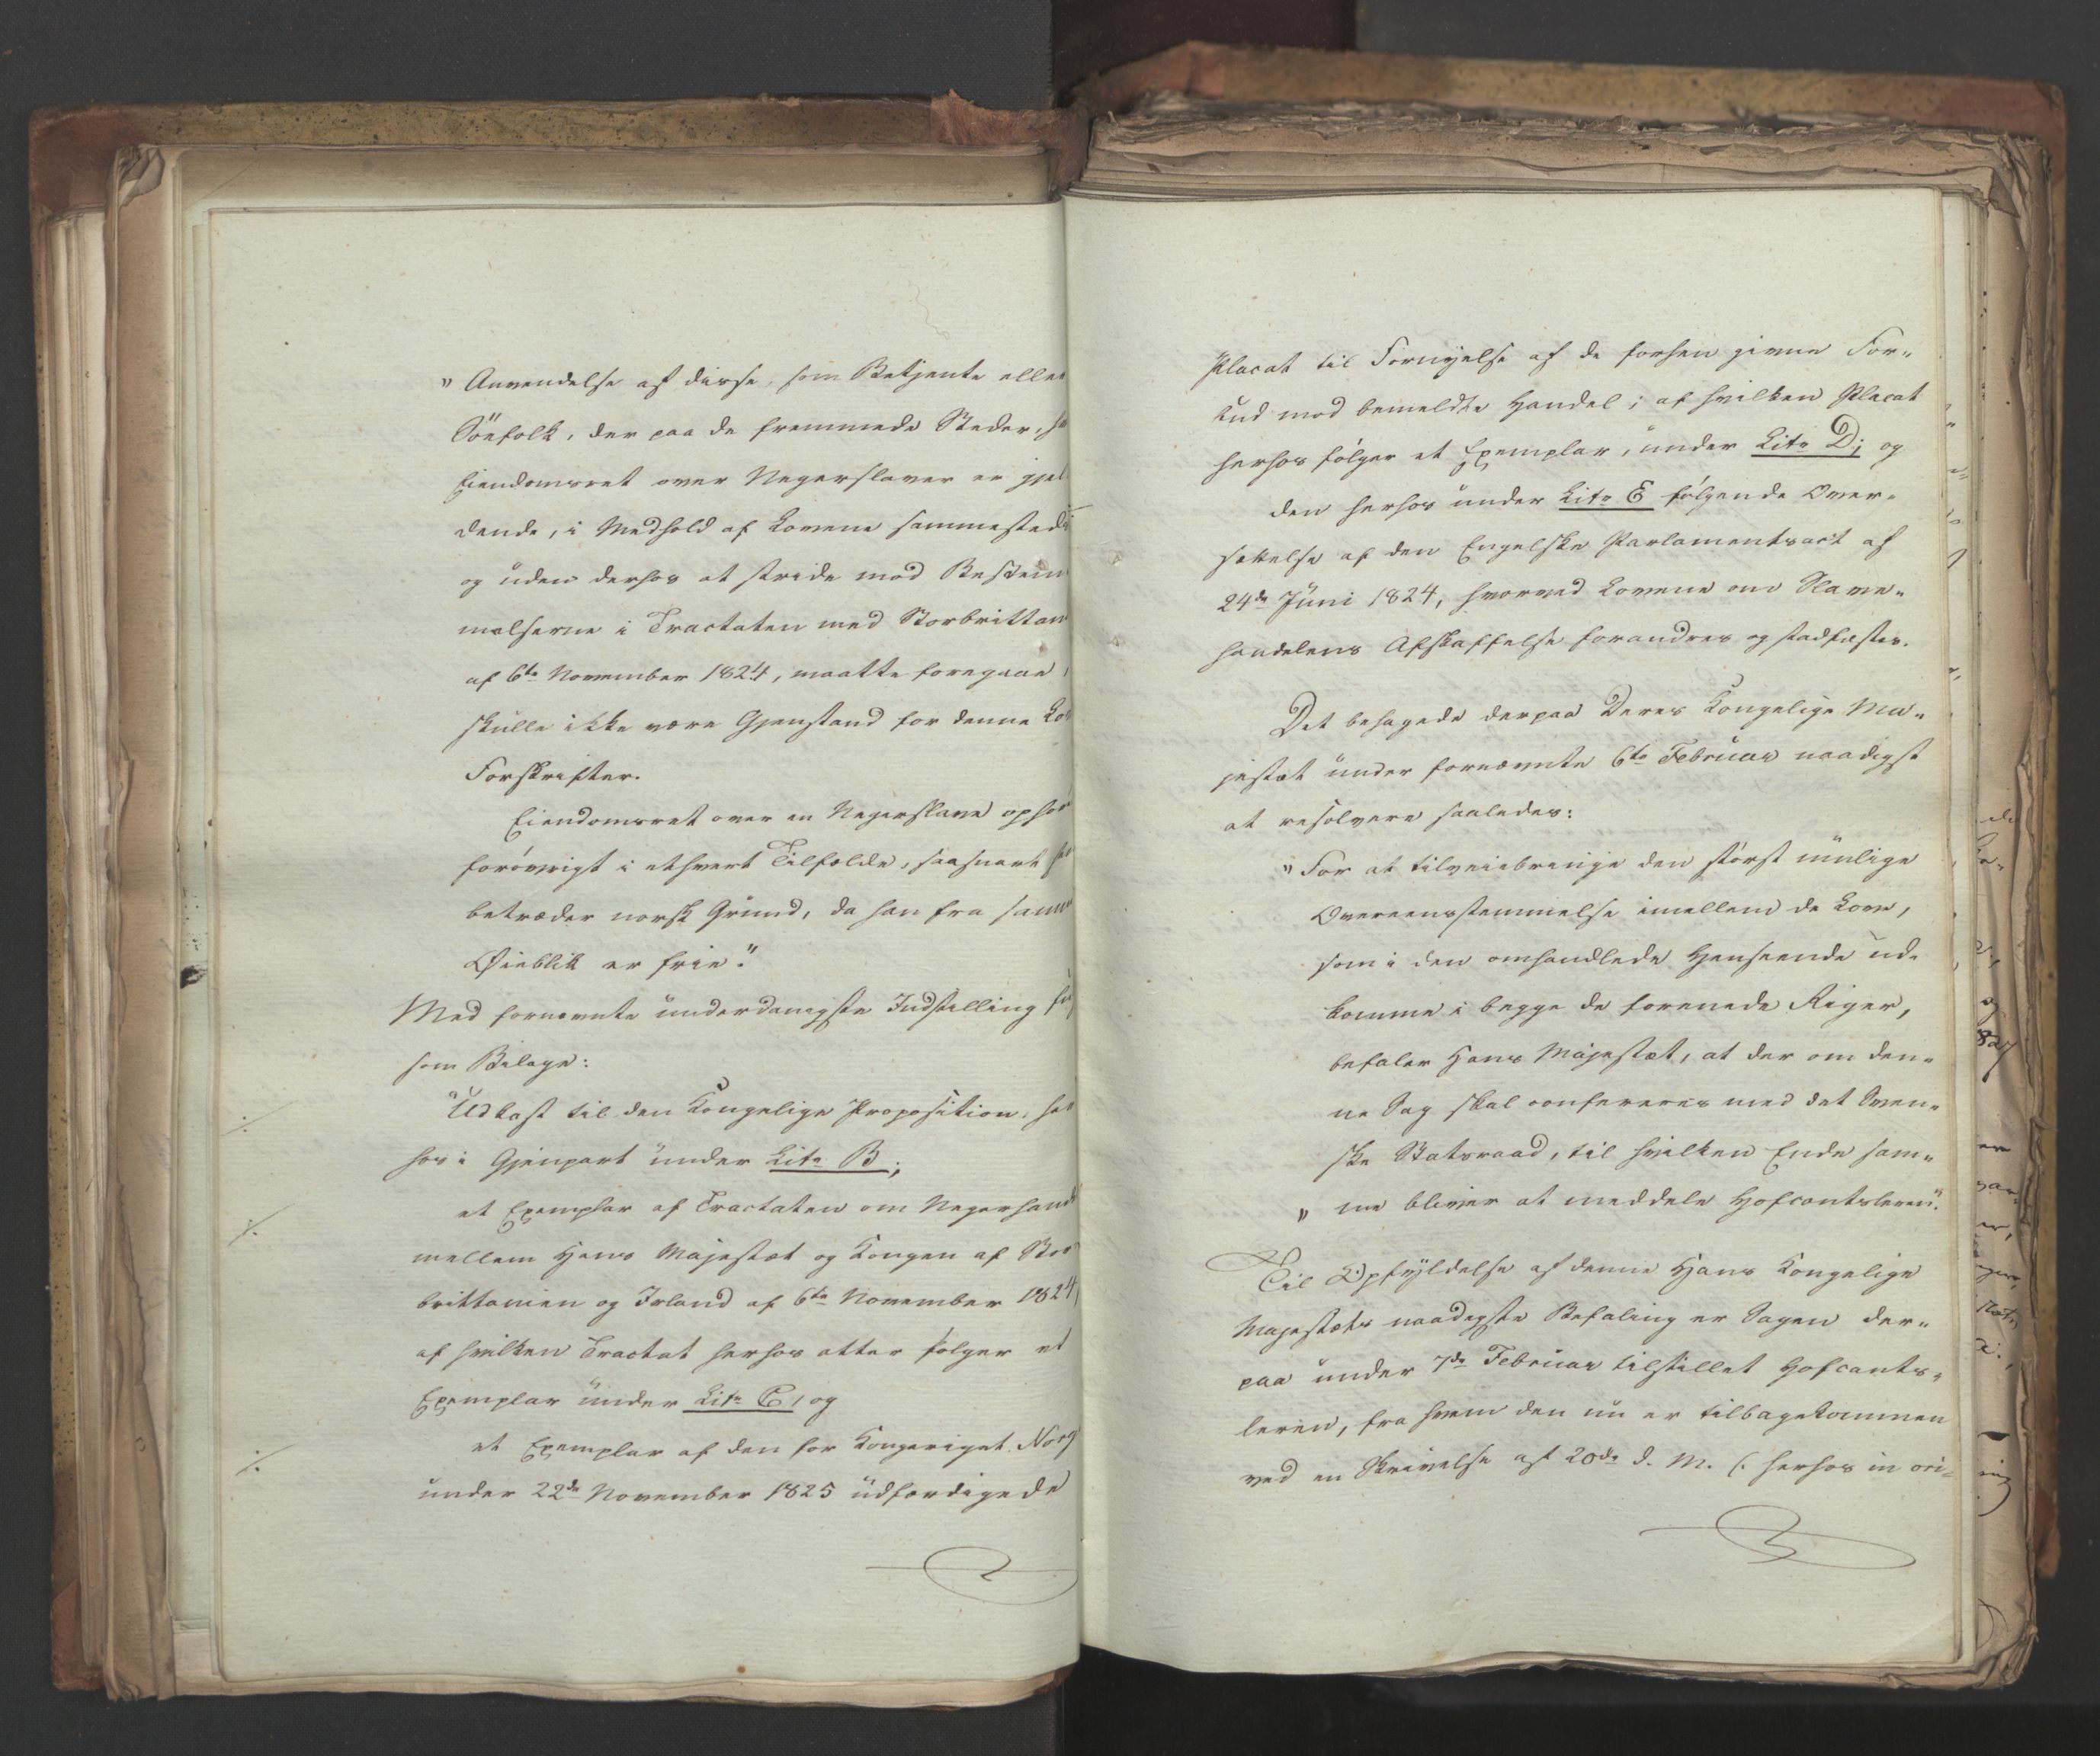 " Anvendelse af disse, som Betjente eller
Söefolk, der paa de fremmede Steder, h
Eiendomsret over Negerslaver er gjel
dende, i Medhold af Lovene sammesteds
og uden derhos at stride mod Bestem
melserne i Tractaten med Storbrittan
af 6te November 1824, maatte foregaae,
skulle ikke være Gjenstand for denne Lov
Forskrifter.
Eiendomsret over en Negerslave ophör
foröwrigt i ethvert Tilfælde, saasnart
betræder norsk Grund, da han fra samme
Øieblik er frie."
Med fornævnte underdanigste Indstilling fu
som Bilage:
Udkast til den Kongelige Proposition, her
hos i Gjenpart under Litr B;
et Exemplar af Tractaten om Negerhand
mellem Hans Majestæt og Kongen af Stor
brittanien og Irland af 6te November 1824,
af hvilken Tractat herhos atter fölger et
Exemplar under Litr C, og
et Exemplar af den for Kongeriget Norg
under 22de November 1825 udfærdigede
Placat til Fornyelse af de forhen givne For-
bud mod bemeldte Handel; af hvilken Placat
herhos fölger et Exemplar, under Litr D; og
den herhos under Litr E fölgende Over-
sættelse af den Engelske Parlamentsact af
24de Juni 1824, hvorved Lovene om Slave-
handelens Afskaffelse forandres og stadfæstes.
Det behagede derpaa Deres Kongelige Ma-
jestæt under fornævnte 6te Februar naadigst
at resolvere saaledes:
" For at tilveiebringe den störst mulige
Overeensstemmelse imellem de Love,
som i den omhandlede Henseende ud-
komme i begge de forenede Riger,
befaler Hans Majestæt, at der om den-
ne Sag skal confereres med det Sven-
ske Statsraad, til hvilken Ende sam-
" me bliver at meddele Hofcantsleren".
Til Opfyldelse af denne Hans Kongelige
Majestæts naadigste Befaling er Sagen der-
paa under 7de Februar tilstillet Hofcants-
leren, fra hvem den nu er tilbagekommen
ved en Skrivelse af 20de d. M. (: herhos in ori-